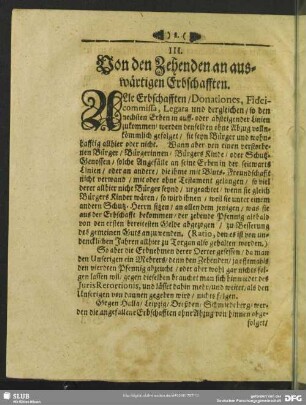 III.
Von den Zehenden an aus-
wärtigen Erbschafften.
Alle Erbschafften / Donationes, Fidei-
commissa, Legata und dergleichen / so den
nechsten Erben in auff- oder absteigender Linien
zukommen / werden denselben ohne Abzug voll-
kömmlich gefolget / sie seyn Bürger und wohn-
hafftig allhier oder nicht. Wann aber von einen verstorbe-
nen Bürger / Bürgerinnen / Bürgers Kinde / oder Schutz-
Genossen / solche Angefälle an seine Erben in der seitwarts
Linien / oder an andere / die ihme mit Bluts-Freundschafft
nicht verwand / mit oder ohne Testament gelangen / so viel
derer allhier nicht Bürger seynd / ungeachtet / wenn sie gleich
Bürgers Kinder wären / so wird ihnen / weil sie unter einem
andern Schutz-Herrn sitzen / an alle dem jenigen / was sie
aus der Erbschafft bekommen / der zehende Pfennig alsbald
von den ersten bereitesten Gelde abgezogen / zu Besserung
des gemeinen Guts anzuwenden. (Ratio, dem es ist von un-
dencklichen Jahren allhier zu Torgau also gehalten worden.)
So aber die Erbnehmen derer Oerter gesessen / da man
den Unserigen ein Mehrers / denn den Zehenden /
werden Pfennig abzeucht / oder aber wohl gar nichts fol-
gen lassen will / gegen dieselben brauchet man sich hinwieder des
Juris Retorsionis, und lässet dahin mehr / und weiter / als den
Unserigen von dannen gegeben wird / nichts folgen.
Gegen Halla / Leipzig / Dreßden / Schmiedeberg / wer-
den die angefallene Erbschafften ohne Abzug von hinnen abge-
folget /
SLUB
DFG